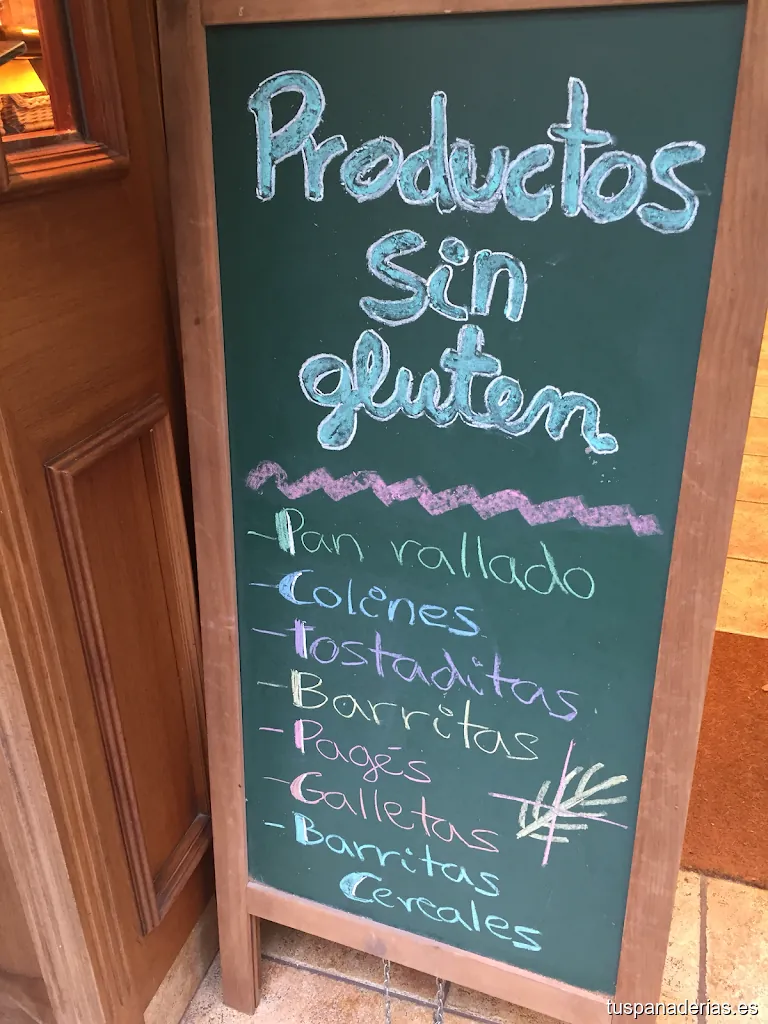 Productos
sin
gluten
- Pan rallado
- Colines
- Tostaditas
- Barritas
- Pagés
- Galletas
- Barritas
Cereales
tuspanaderias.es